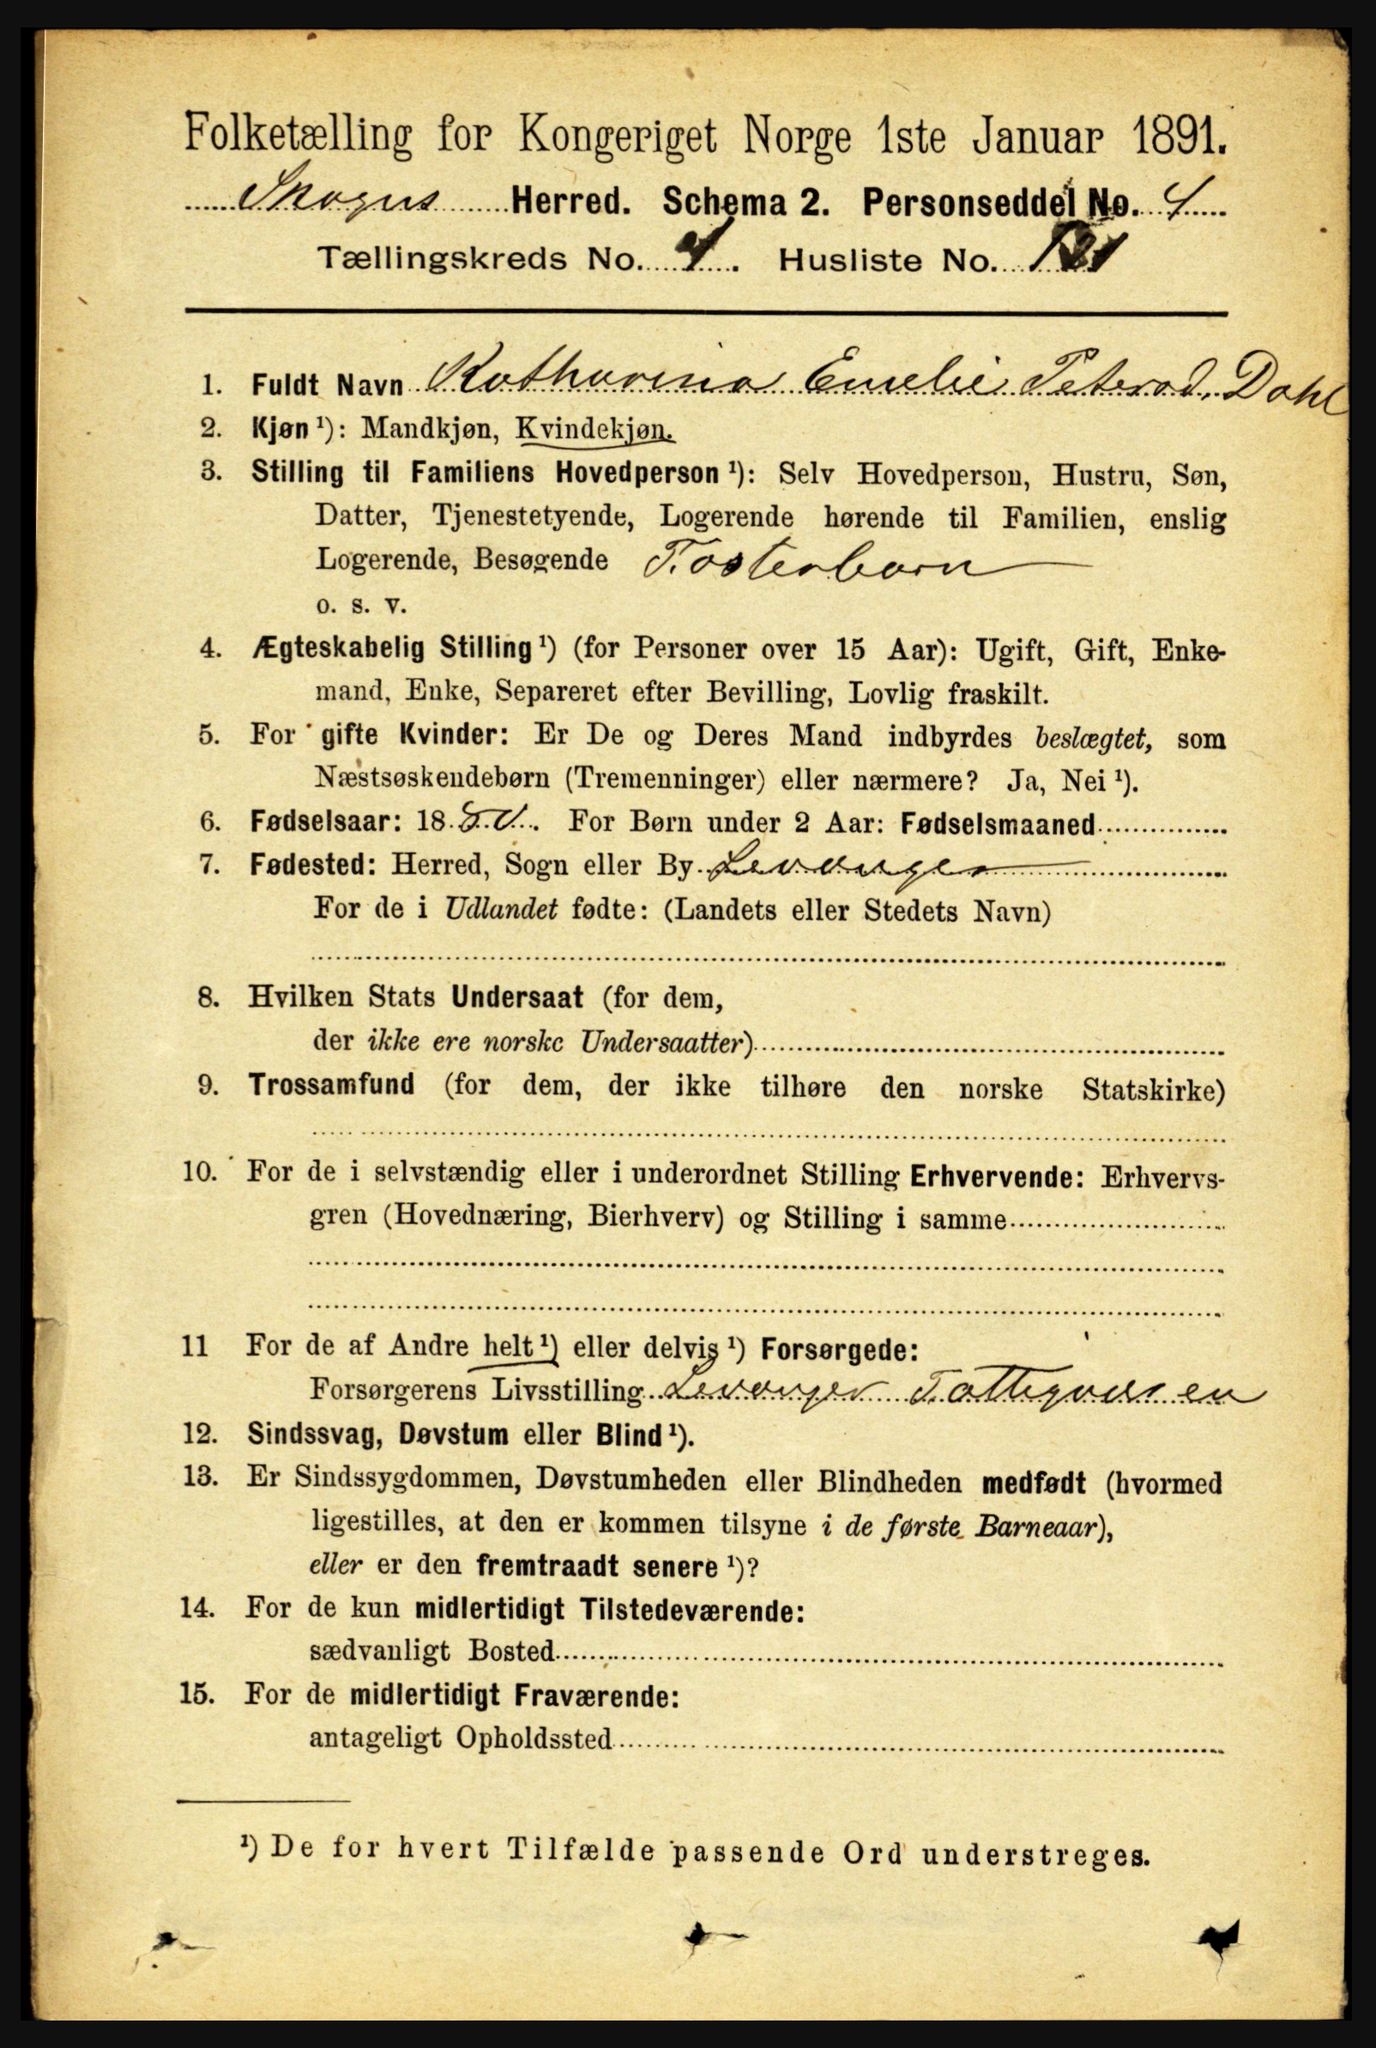 Folketælling for Kongeriget Norge 1ste Januar 1891.
Skogns Herred. Schema 2. Personseddel No. 4
Tællingskreds No. 4. Husliste No.
1. Fuldt Navn Katharina Emelie Petersd. Dahl
2. Kjøn ¹): Mandkjøn, Kvindekjøn.
3. Stilling til Familiens Hovedperson ¹): Selv Hovedperson, Hustru, Søn,
Datter, Tjenestetyende, Logerende hørende til Familien, enslig
Logerende, Besøgende Fosterbarn
o. s. v.
4. Ægteskabelig Stilling ¹) (for Personer over 15 Aar): Ugift, Gift, Enke-
mand, Enke, Separeret efter Bevilling, Lovlig fraskilt.
5. For gifte Kvinder: Er De og Deres Mand indbyrdes beslægtet, som
Næstsøskendebørn (Tremenninger) eller nærmere? Ja, Nei ¹).
6. Fødselsaar: 18 80. For Børn under 2 Aar: Fødselsmaaned
7. Fødested: Herred, Sogn eller By Levanger
For de i Udlandet fødte: (Landets eller Stedets Navn)
8. Hvilken Stats Undersaat (for dem,
der ikke ere norske Undersaatter)
9. Trossamfund (for dem, der ikke tilhøre den norske Statskirke)
10. For de i selvstændig eller i underordnet Stilling Erhvervende: Erhvervs-
gren (Hovednæring, Bierhverv) og Stilling i samme
11 For de af Andre helt ¹) eller delvis ¹) Forsørgede:
Forsørgerens Livsstilling Levanger Fattigvæsen
12. Sindssvag, Døvstum eller Blind ¹).
13. Er Sindssygdommen, Døvstumheden eller Blindheden medfødt (hvormed
ligestilles, at den er kommen tilsyne i de første Barneaar),
eller er den fremtraadt senere ¹)?
14. For de kun midlertidigt Tilstedeværende:
sædvanligt Bosted
15. For de midlertidigt Fraværende:
antageligt Opholdssted
¹) De for hvert Tilfælde passende Ord understreges.